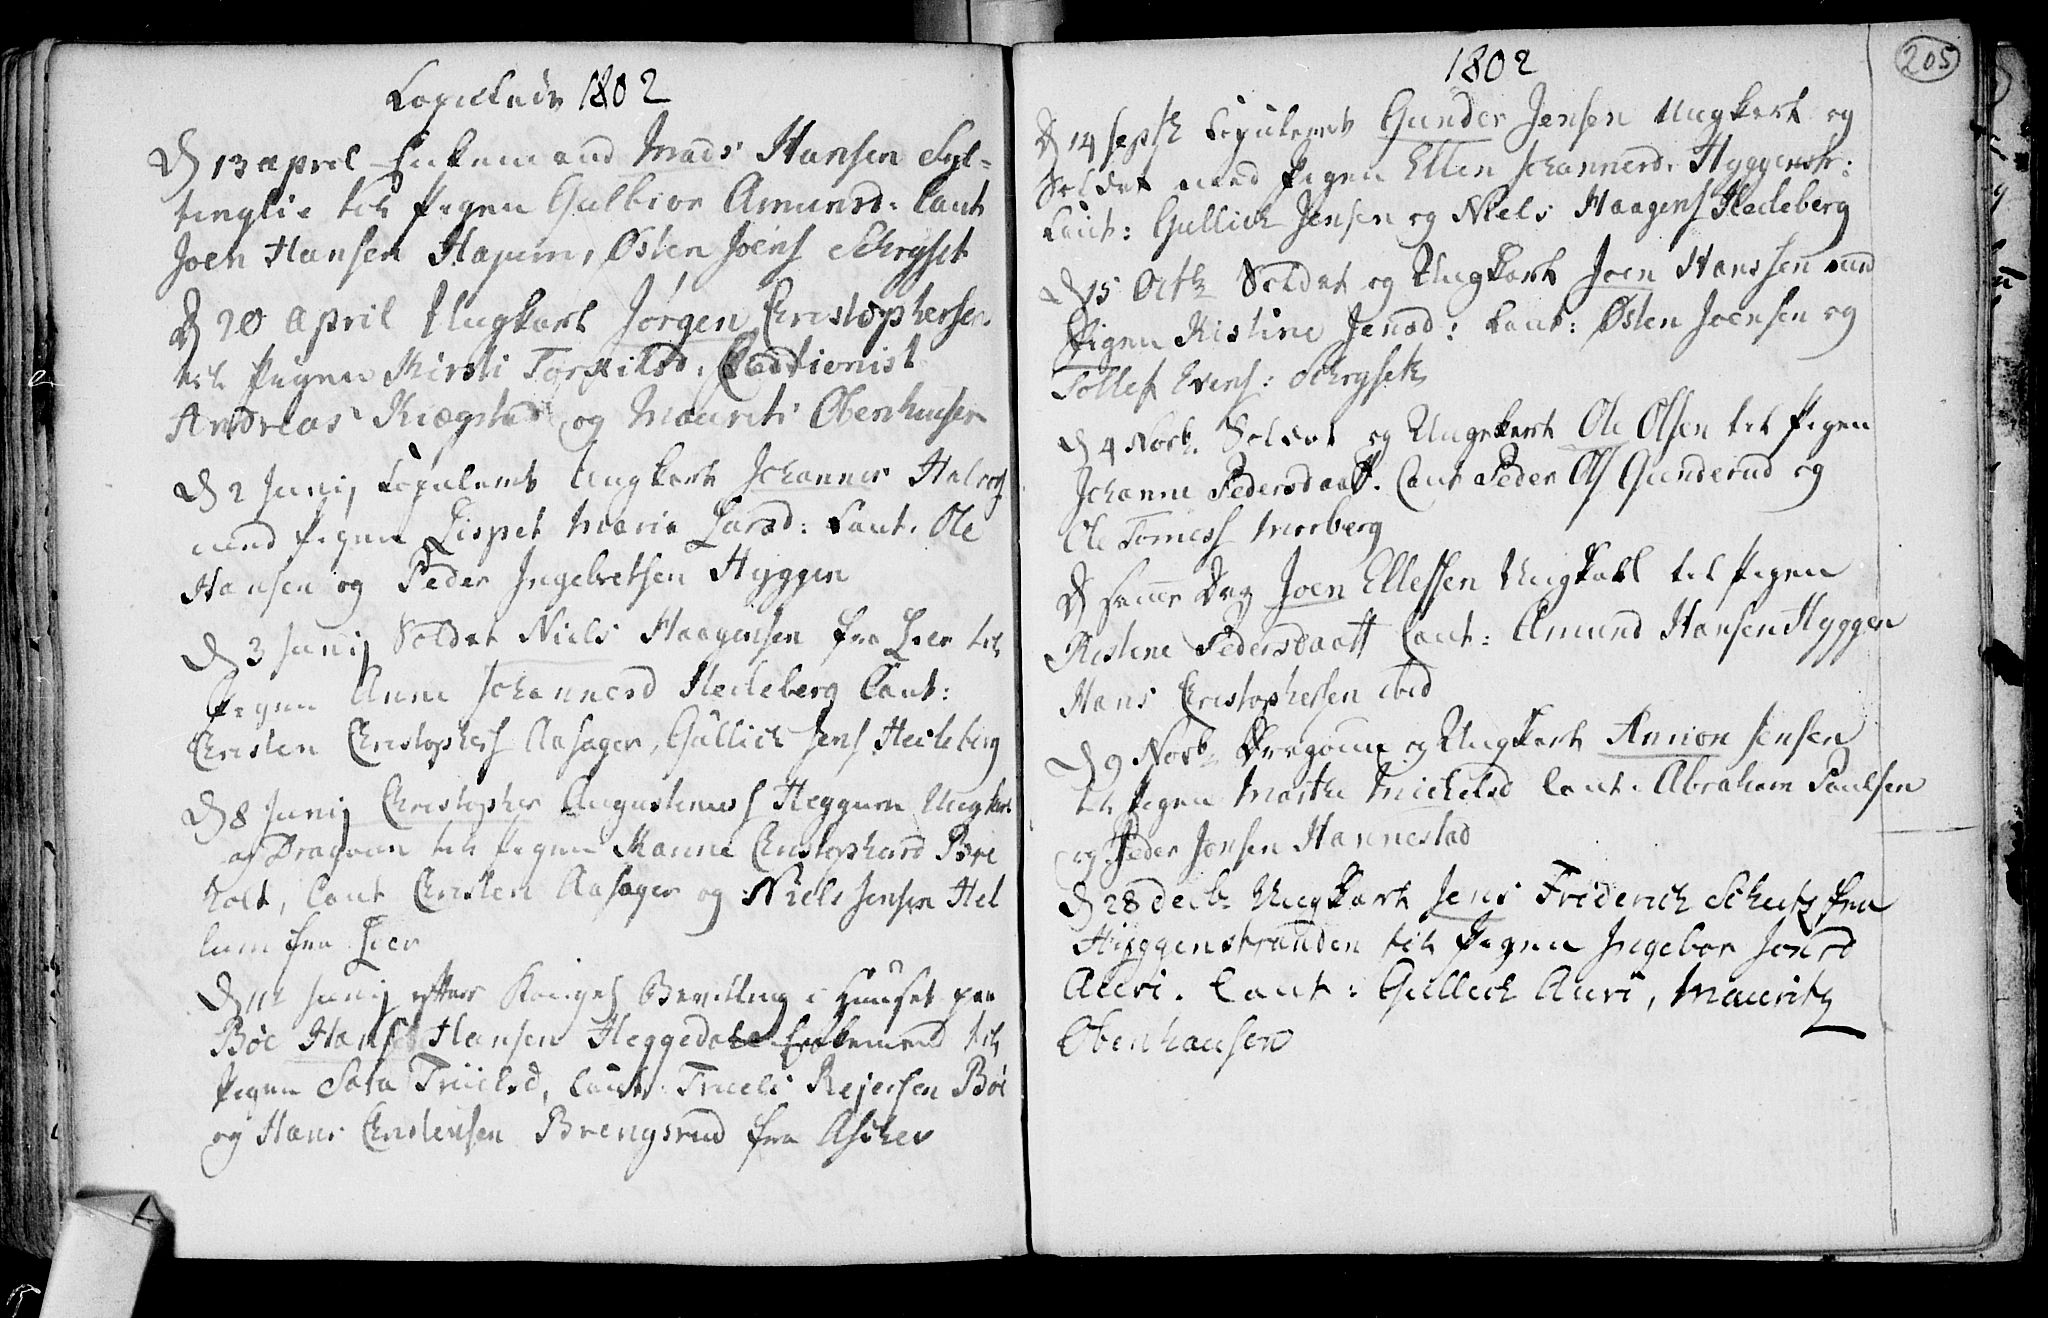 Copulerede 1802
D 13 april Enkemand Mads Hansen Syl-
tinglie til Pigen Gulbior Amunsd: Caut
Joen Hansen Hajum, Østen Joens Schryset
D 20 April Ungkarl Jørgen Christophersen
til Pigen Kirsti Torkilsd. Cautionist
Andreas Kiægstad og Maurits Obenhausen
D 2 Junij Copuleret Ungkarl Johannes Halvors
med Pigen Lispet Maria Larsd: Caut. Ole
Hansen og Peder Ingebretsen Hyggen
D 3 Junij Soldat Niels Haagensen fra Lier til
Pigen Anne Johannesd Hedeberg Caut:
Christen Christophers Aasager, Gullich Jens Hedeberg
D 8 Junij Christopher Augustinuss Heggum Ungkarl
og Dragoun til Pigen Karine Christophersd Børe
holt, Caut Christen Aasager og Niels Jensen Hel
lum fra Lier
D 11te Junij efter Konges Bevilling i Huuset paa
Bøe Hans Hansen Heggedale Enkemand til
Pigen Sara Truelsd, Caut. Truels Rejersen Bøe
og Hans Christensen Brengsrud fra Ascher
1802
205
D 14 septb Copuleret Gunder Jensen Ungkarl og
Soldat med Pigen Ellen Johannesd. Hyggenstr:
Caut: Gullich Jensen og Niels Haagens Hedeberg
D 15 Octb Soldat og Ungkarl Joen Hanssen med
Pigen Kistine Jensd: Caut: Østen Joensen og
Tollef Evens: Schryset
D 4 Novb. Soldat og Ungekarl Ole Olsen til Pigen
Johanne Pedersdaatt. Caut Peder Ols Gunderud og
Ole Tomess Morberg
D samme Dag Joen Ellessen Ungkall til Pigen
Kistine Pedersdaatt Caut: Amund Hansen Hyggen
Hans Christophersen ibid
D 9 Novb. Dragoun og Ungkarl Annion Jensen
til Pigen Marthe Michelsd Caut. Abraham Paulsen
og Peder Jensen Hannestad
D 28 decb. Ungkarl Jens Friderich Schutz fra
Hyggenstranden til Pigen Ingebor Jonsd
Auvi. Caut: Gullich Auvi, Mauritz
Obenhausen